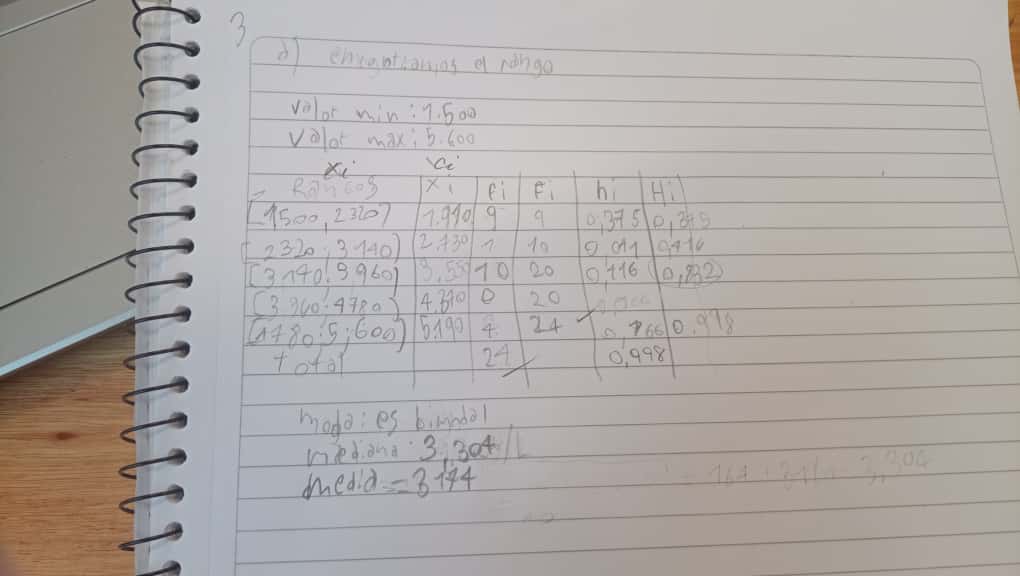 3
a) encontramos el rango
valor min: 1.500
valor max: 5.600
xi ci
Rangos xi fi Fi hi Hi
[1500, 2320) 1.910 9 9 0,375 0,375
[2320; 3140) 2.730 1 10 0,041 0,416
[3140; 3960) 3,550 10 20 0,416 (0,832)
[3.960; 4780) 4,370 0 20
[4780; 5;600) 5.190 4 24 0,166 0.998
total 24 0,998
moda: es bimodal
mediana: 3,304
media = 3174
3,304